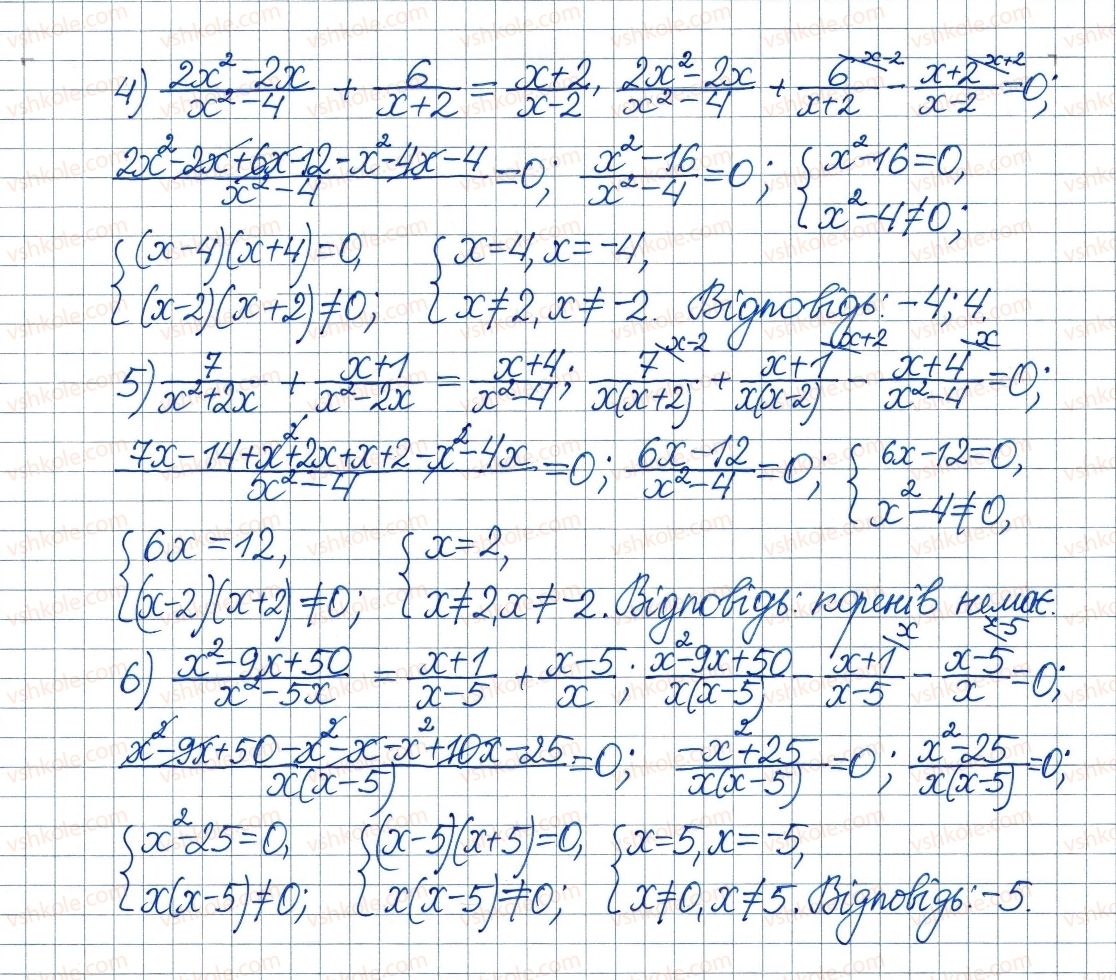 4) (2x²-2x)/(x²-4) + 6/(x+2) = (x+2)/(x-2), (2x²-2x)/(x²-4) + 6^(x-2)/(x+2) - (x+2)^(x+2)/(x-2) = 0;
(2x²-2x+6x-12-x²-4x-4)/(x²-4) = 0; (x²-16)/(x²-4) = 0; { x²-16=0, x²-4≠0;
{ (x-4)(x+4)=0, (x-2)(x+2)≠0; { x=4, x=-4, x≠2, x≠-2. Відповідь: -4; 4.
5) 7/(x²+2x) + (x+1)/(x²-2x) = (x+4)/(x²-4); 7^(x-2)/(x(x+2)) + (x+1)^(x+2)/(x(x-2)) - (x+4)^x/(x²-4) = 0;
(7x-14+x²+2x+x+2-x²-4x)/(x²-4) = 0; (6x-12)/(x²-4) = 0; { 6x-12=0, x²-4≠0,
{ 6x=12, (x-2)(x+2)≠0; { x=2, x≠2, x≠-2. Відповідь: коренів немає.
6) (x²-9x+50)/(x²-5x) = (x+1)/(x-5) + (x-5)/x; (x²-9x+50)/(x(x-5)) - (x+1)^x/(x-5) - (x-5)^(x-5)/x = 0;
(x²-9x+50-x²-x-x²+10x-25)/(x(x-5)) = 0; (-x²+25)/(x(x-5)) = 0; (x²-25)/(x(x-5)) = 0;
{ x²-25=0, x(x-5)≠0; { (x-5)(x+5)=0, x(x-5)≠0; { x=5, x=-5, x≠0, x≠5. Відповідь: -5.
vshkole.com